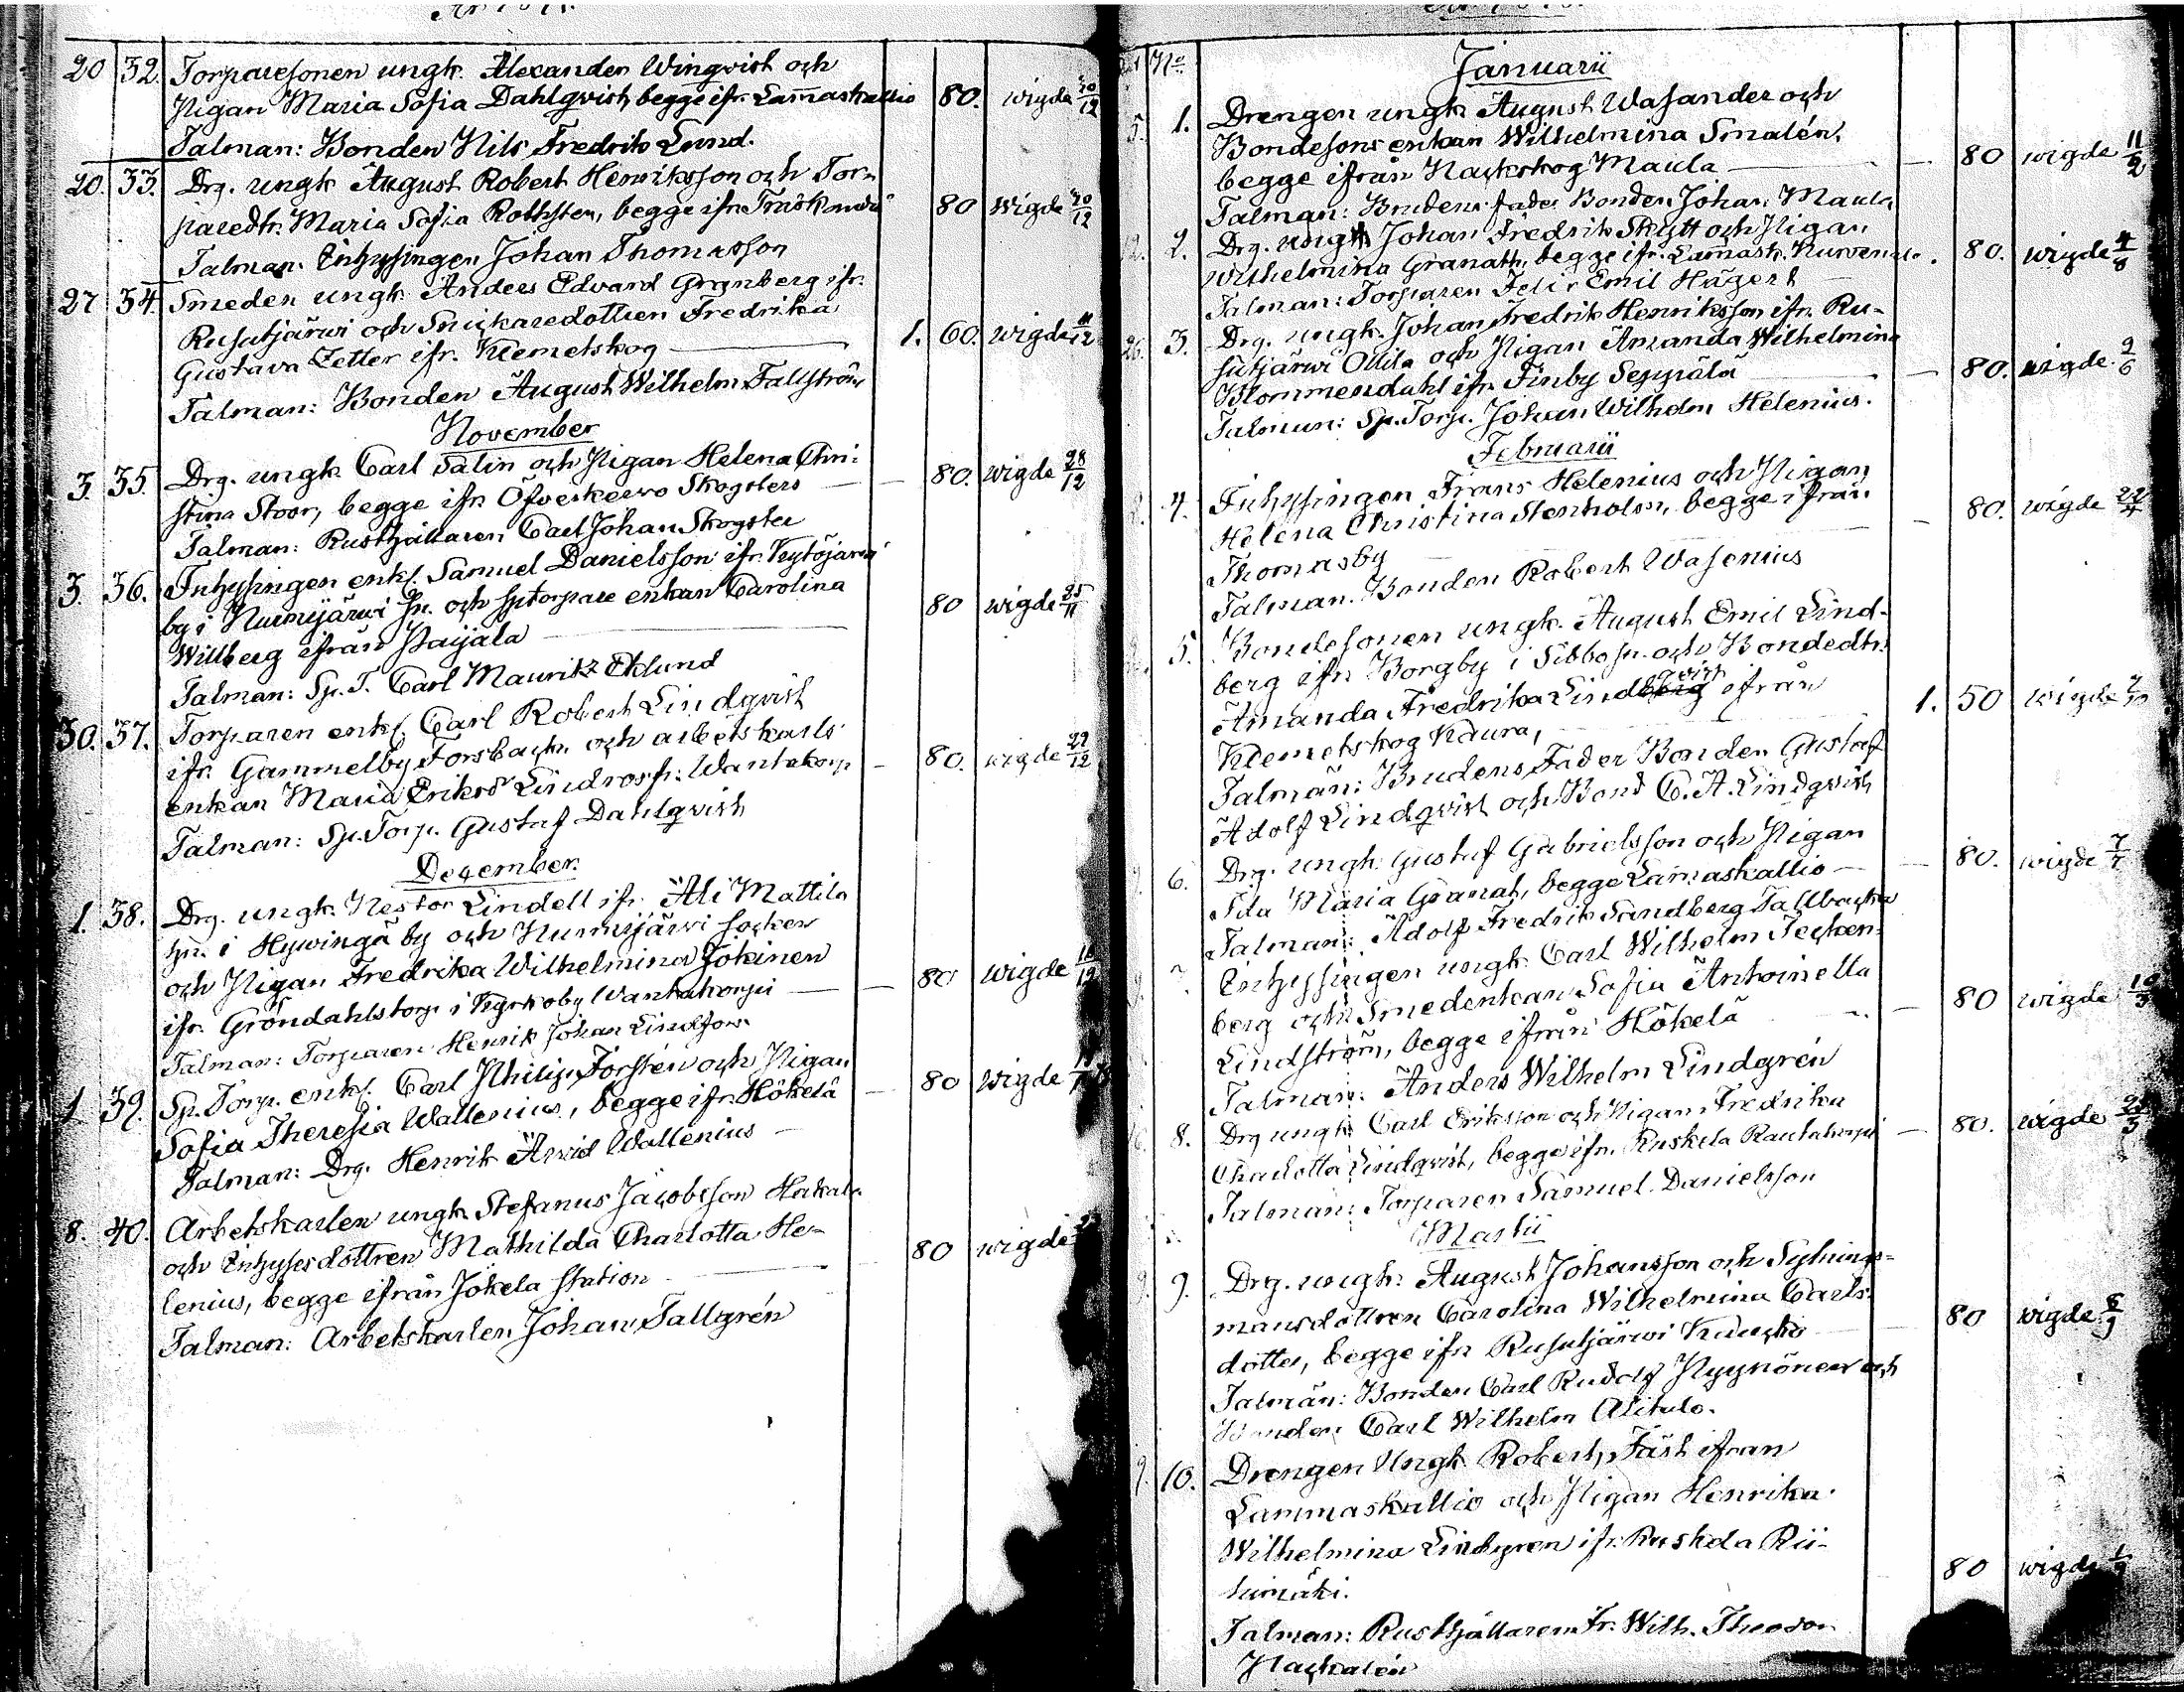 20 32. Torparesonen ungk. Alexander Wingvist och
Pigan Maria Sofia Dahlqvist, begge ifr. Lam̄askallio 80. wigde 30/12
Talman: Bonden Nils Fredrik Lund.
20. 33. Drg. ungk August Robert Henriksson och Tor-
paredtr. Maria Sofia Rothsten, begge ifr. Träskände 80 wigde 30/12
Talman. Inhysingen Johan Thomasson
27 34. Smeden ungk. Anders Edvard Grönberg ifr.
Rusutjärwi och Snickaredottren Fredrika
Gustava Zetler ifr. Klemetskog 1. 60. wigde 11/12
Talman: Bonden August Wilhelm Fallström
November
3. 35. Drg. ungk. Carl Salin och Pigan Helena Chri-
stina Stoor, begge ifr. Öfverkervo Skogsters 80. wigde 28/12
Talman: Rusthållaren Carl Johan Skogster
3. 36. Inhysingen enkl. Samuel Danielsson ifr. Keytöjärvi
by i Nurmijärwi Sn. och sptorpare enkan Carolina
Willberg ifrån Paijala 80 wigde 25/11
Talman: Sp. T. Carl Mauritz Eklund
30. 37. Torparen enkl. Carl Robert Lindqvist
ifr. Gammelby Forsbacka och arbetskarls
enkan Maria Eriksdr Lindros fr. Wantakorp 80. wigde 29/12
Talman: Sp. Torp. Gustaf Dahlqvist
December.
1. 38. Drg. ungk. Nestor Lindell ifr. Ali Mattila
hn. i Hywingä by och Nurmijärwi socken
och Pigan Fredrika Wilhelmina Jokinen
ifr. Gröndahlstorp i Kyrkoby Wantakorpi 80 wigde
Talman: Torparen Henrik Johan Lindfors
1 39. Sp. Torp. enkl. Carl Philip Forstén och Pigan
Sofia Theresia Wallenius, begge ifr. Hökelä 80 wigde
Talman: Drg. Henrik Arvid Wallenius
8. 40. Arbetskarlen ungk. Stefanus Jacobsson Hakala
och Inhysesdottren Mathilda Charlotta He-
lenius, begge ifrån Jokela station 80 wigde
Talman: Arbetskarlen Johan Tallgrén
No
Januarii
5. 1. Drengen ungk. August Wasander och
Bondesons enkan Wilhelmina Smalén,
begge ifrån Nackskog Maula 80 wigde 11/2
Talman: Brudens fader Bonden Johan Maula
12. 2. Drg. ungk Johan Fredrik Skytt och Pigan
Wilhelmina Granath, begge ifr. Lam̄ask. 80. wigde 4/8
Talman: Torparen Felix Emil Hägert
26. 3. Drg. ungk. Johan Fredrik Henriksson ifr. Ru-
sutjärwi Ollila och Pigan Amanda Wilhelmina
Blommendahl ifr. Finby Seppälä 80. wigde 9/6
Talman: Sp. Torp. Johan Wilhelm Helenius.
Februarii
2. 4. Inhysingen Frans Helenius och Pigan
Helena Christina Stenholm, begge ifrån
Thomasby 80. wigde 22/4
Talman. Bonden Robert Wasenius
5. Bondesonen ungk. August Emil Lind-
berg ifr. Borgby i Sibbo sn. och Bondedtr.
Amanda Fredrika Lindberg qvist ifrån
Klemetskog Kaura, 1. 50 wigde
Talmän: Brudens Fader Bonden Gustaf
Adolf Lindqvist och Bond C. A. Lindqvist
6. Drg. ungk. Gustaf Gabrielsson och Pigan
Ida Maria Granat, begge Lam̄askallio 80. wigde 7/7
Talman: Adolf Fredrik Sandberg Tallbacka
7. Inhysingen ungk. Carl Wilhelm Tecken-
berg och Smedenkan Sofia Antoinetta
Lindström, begge ifrån Hökelä 80 wigde 10/3
Talman: Anders Wilhelm Lindgrén
8. Drg ungk Carl Eriksson och Pigan Fredrika
Charlotta Lindqvist, begge ifr. Ruskela Rautakorpi 80. wigde
Talman: Torparen Samuel Danielsson
Martii
9. 9. Drg. ungk. August Johansson och Sytnings-
mansdottren Carolina Wilhelmina Carls-
dotter, begge ifr. Rusutjärwi Kaucko 80 wigde
Talmän: Bonden Carl Rudolf Pyynönen och
Bonden Carl Wilhelm Alitalo.
9. 10. Drengen Ungk. Robert Fäst ifran
Lammaskallio och Pigan Henrika
Wilhelmina Lindgren ifr. Ruskela Rii-
himäki. 80 wigde
Talman: Rusthållaren Fr. Wilh. Theodor
Nackalén